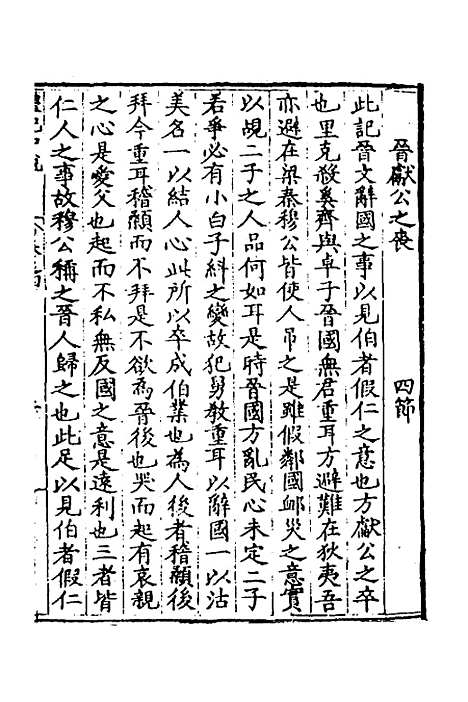 晉獻公之喪 四節
此記晉文辭國之事以見伯者假仁之意也方獻公之卒
也里克殺奚齊與卓子晉國無君重耳方避難在狄夷吾
亦避在梁秦穆公皆使人吊之是雖假鄰國邮災之意實
以覘二子之人品何如耳是時晉國方亂民心未定二子
若爭必有小白子糾之變故犯舅教重耳以辭國一以沽
美名一以結人心此所以卒成伯業也為人後者稽顙後
拜今重耳稽顙而不拜是不欲為晉後也哭而起有哀親
之心是愛父也起而不私無反國之意是遠利也三者皆
仁人之事故穆公稱之晉人歸之也此足以見伯者假仁